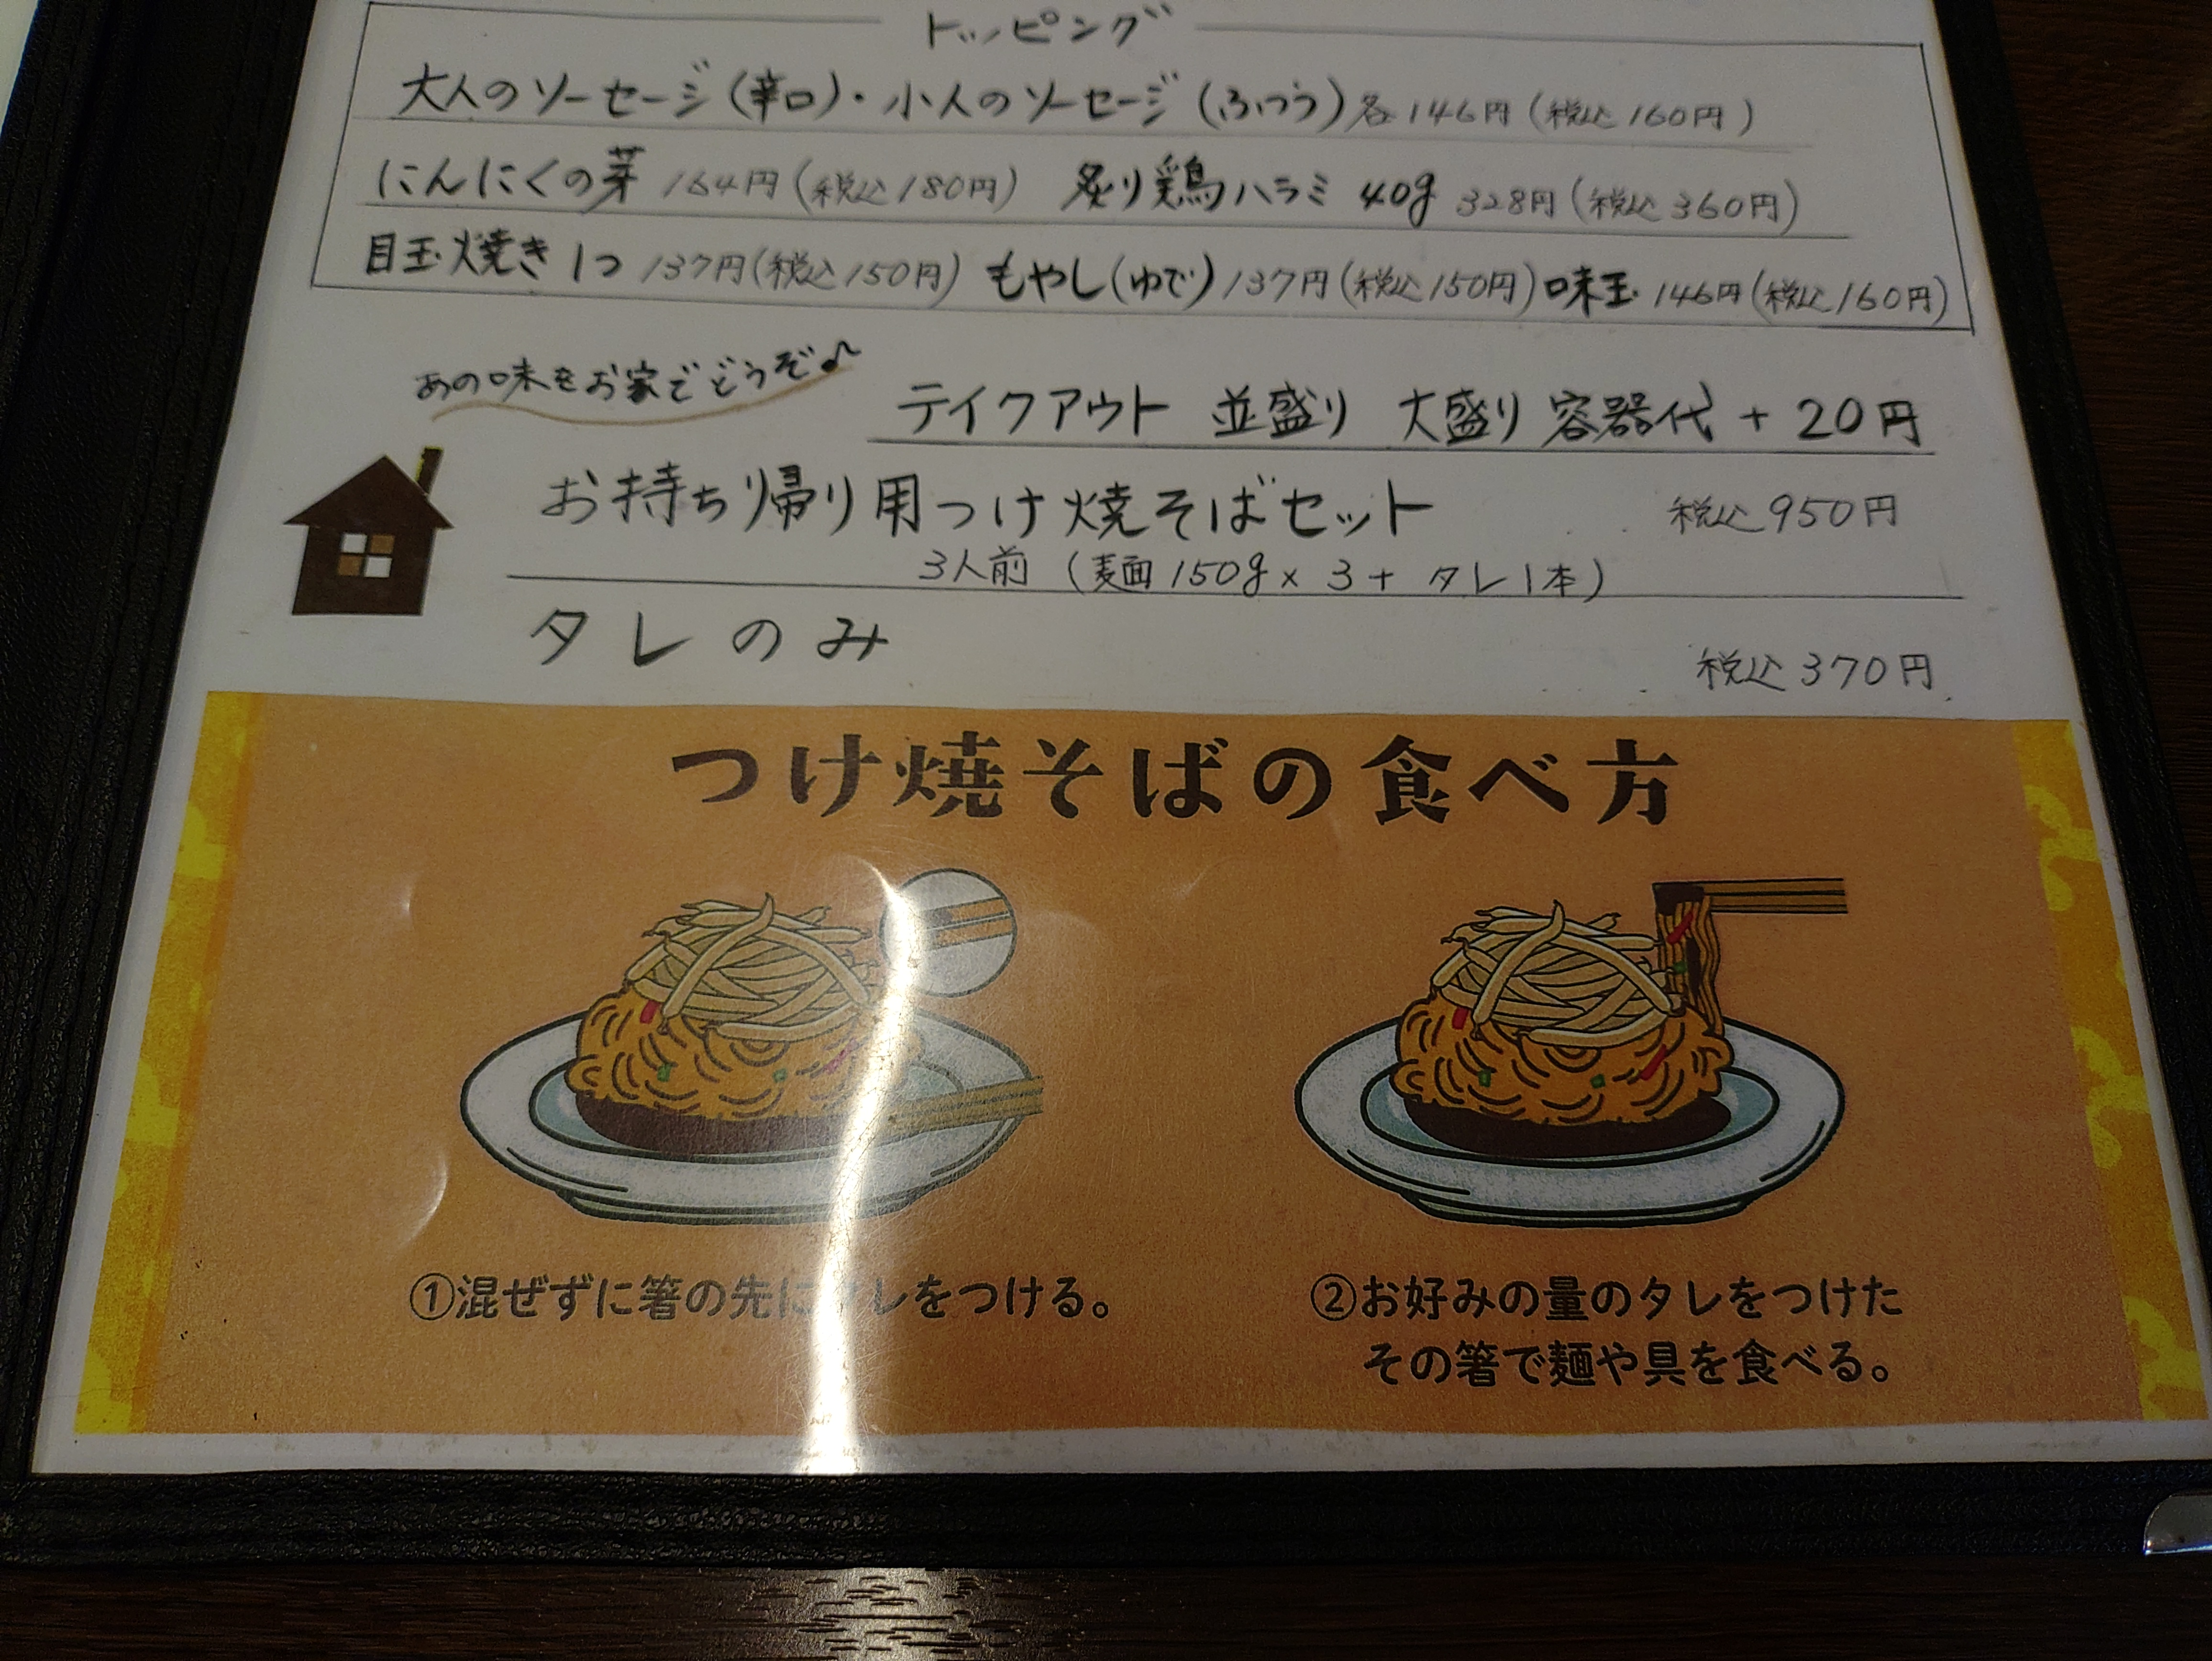 トッピング
大人のソーセージ(辛口)・小人のソーセージ(ふつう)各146円(税込160円)
にんにくの芽 164円(税込180円) 炙り鶏ハラミ 40g 328円(税込360円)
目玉焼き1つ 137円(税込150円) もやし(ゆで)137円(税込150円)味玉 146円(税込160円)
あの味をお家でどうぞ♪
テイクアウト 並盛り 大盛り 容器代+20円
お持ち帰り用つけ焼そばセット 税込950円
3人前 (麺150g×3+タレ1本)
タレのみ 税込370円
つけ焼そばの食べ方
①混ぜずに箸の先にタレをつける。
②お好みの量のタレをつけた
その箸で麺や具を食べる。